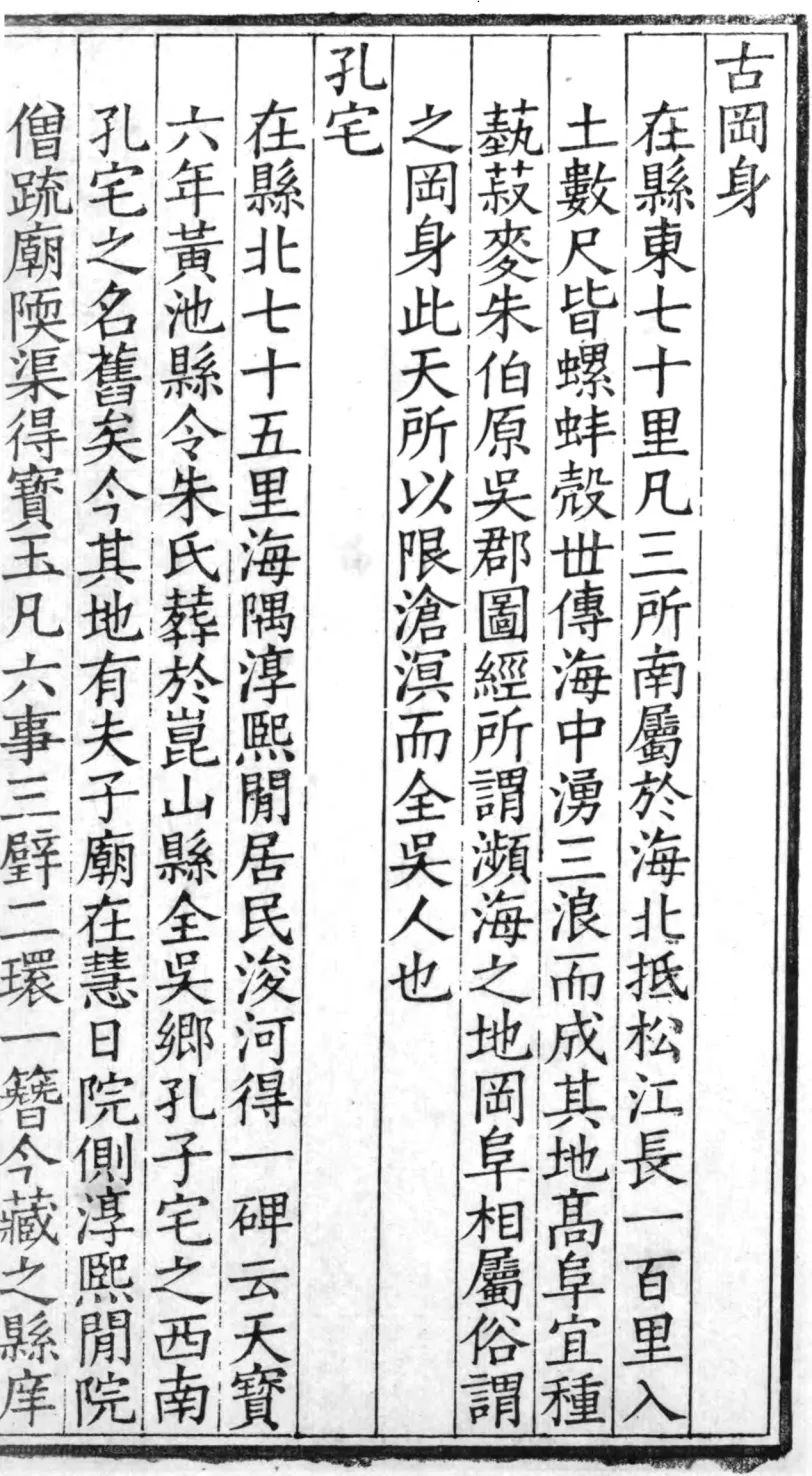 古岡身
在縣東七十里凡三所南屬於海北抵松江長一百里入
土數尺皆螺蚌殻世傳海中湧三浪而成其地髙阜宜種
蓺菽麥朱伯原吳郡圖經所謂瀕海之地岡阜相屬俗謂
之岡身此天所以限滄溟而全吳人也
孔宅
在縣北七十五里海隅淳熙閒居民浚河得一碑云天寶
六年黃池縣令朱氏葬於崑山縣全吳鄉孔子宅之西南
孔宅之名舊矣今其地有夫子廟在慧日院側淳熙閒院
僧䟽廟陾渠得寶玉凡六事三璧二環一簪今藏之縣庠